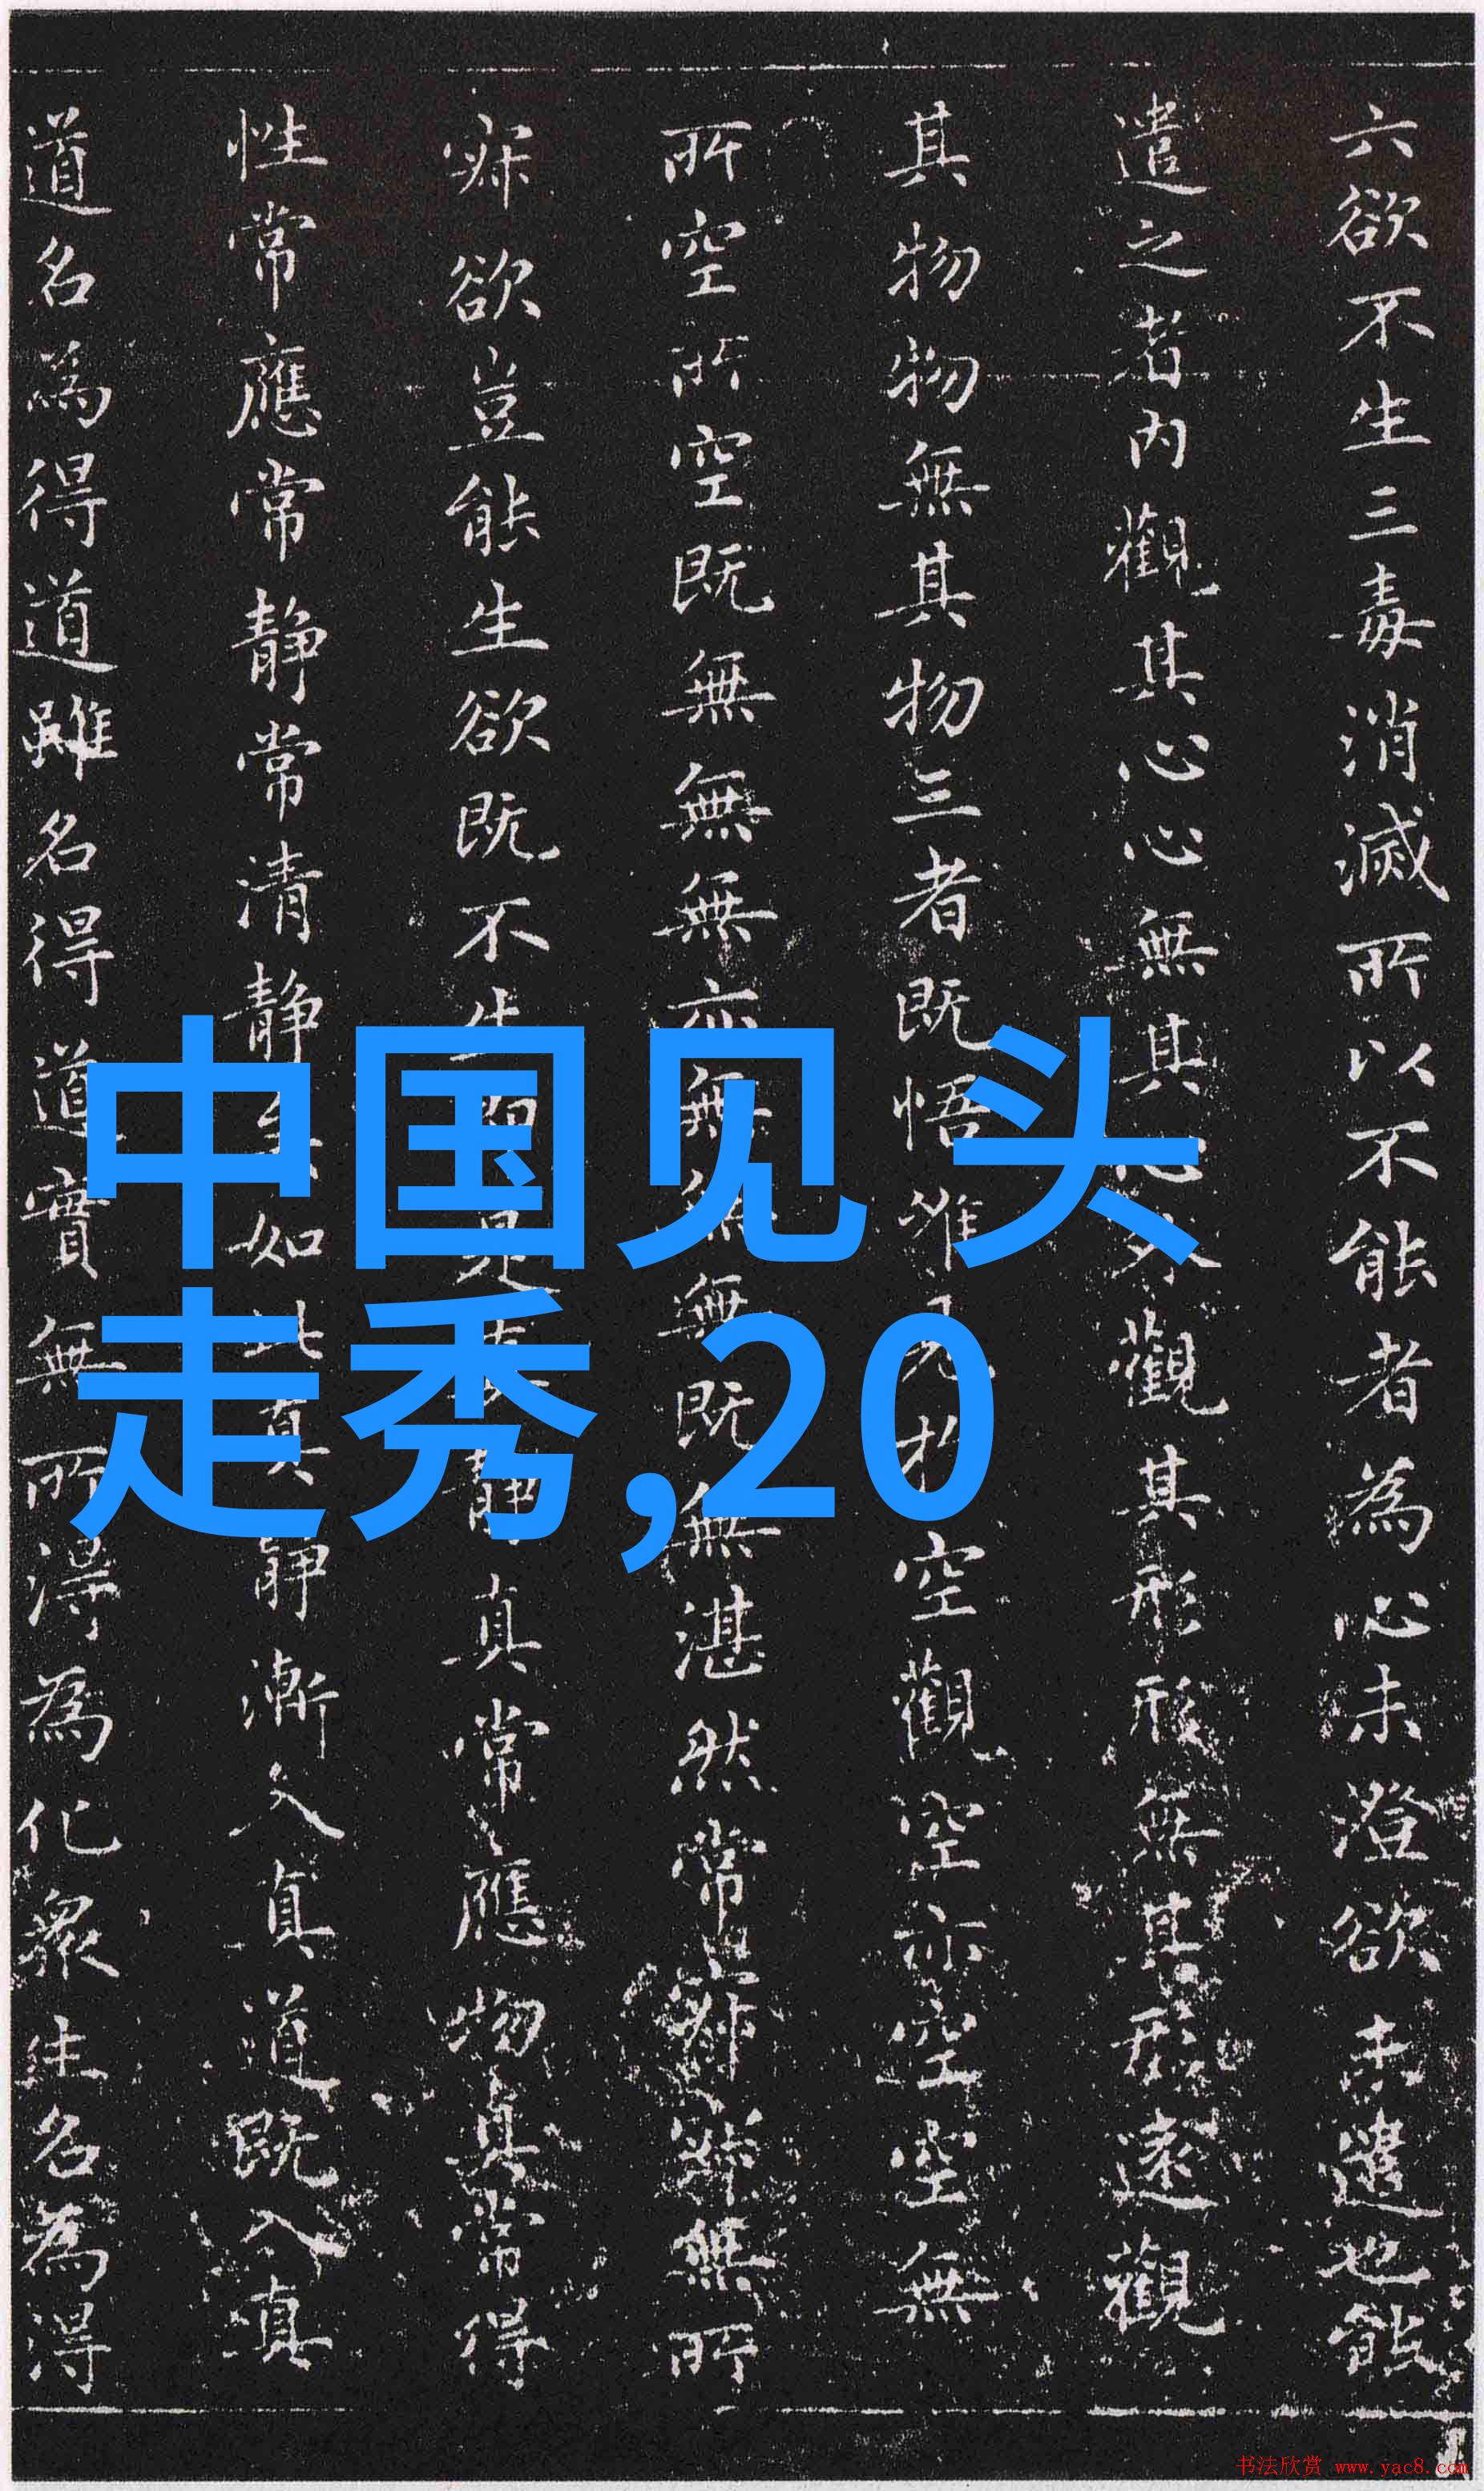 六欲不生三毒消滅所以不能者為心未澄欲未遣也能
遣之者內觀其心心無其心外觀其形形無其形遠觀
其物物無其物三者既悟唯見於空觀空亦空空無
所空所空既無無無亦無無無既無湛然常寂寂無所
寂欲豈能生欲既不生即是真靜真常應物真常得
性常應常静常清静矣如此真静漸入真道既入真
道名為得道雖名得道實無所得為化衆生名為得
中国见 头
走秀,20
书法欣赏 www.yac8.com